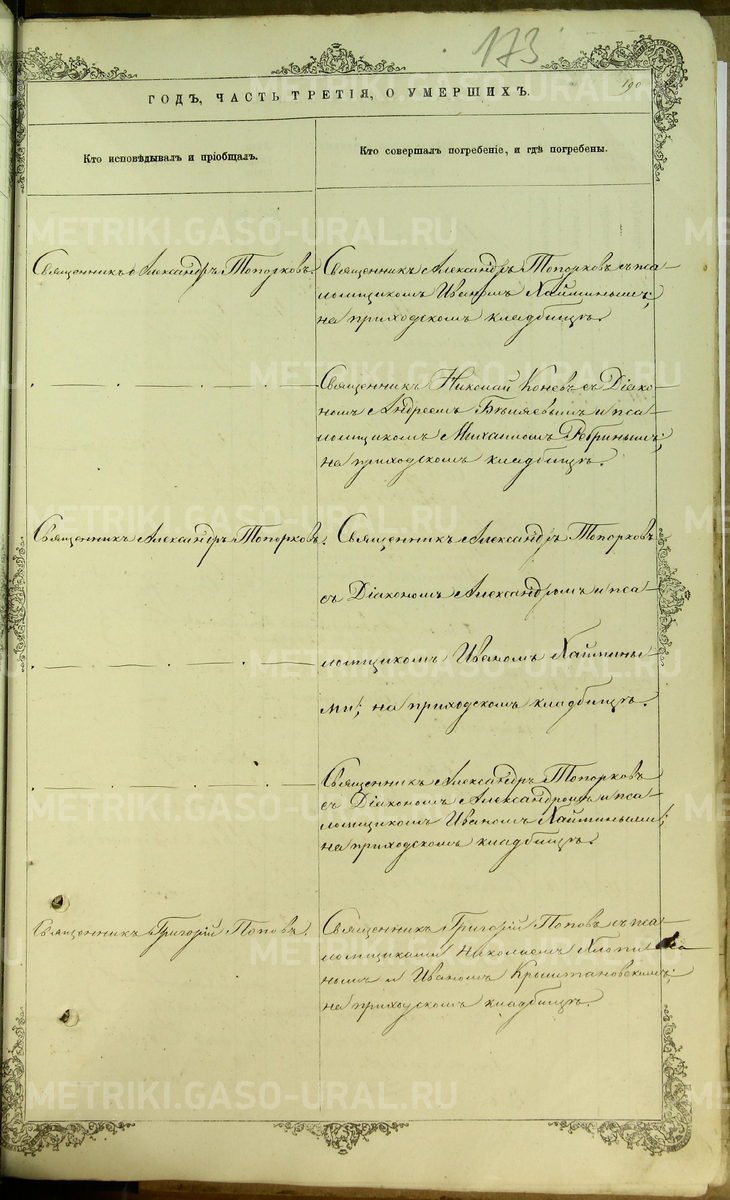 173
190
ГОДЪ, ЧАСТЬ ТРЕТІЯ, О УМЕРШИХЪ.
Кто исповѣдывалъ и пріобщалъ.
Кто совершалъ погребеніе, и гдѣ погребены.
Священникъ Александръ Топорковъ.
Священникъ Александръ Топорковъ съ пса-
ломщикомъ Иваномъ Хайминымъ;
на приходскомъ кладбищѣ.
Священникъ Николай Коневъ съ Діако-
номъ Андреемъ Бѣляевымъ и пса-
ломщикомъ Михаиломъ Ребринымъ;
на приходскомъ кладбищѣ.
Священникъ Александръ Топорковъ.
Священникъ Александръ Топорковъ
съ Діакономъ Александромъ и пса-
ломщикомъ Иваномъ Хаймины-
ми; на приходскомъ кладбищѣ.
Священникъ Александръ Топорковъ
съ Діакономъ Александромъ и пса-
ломщикомъ Иваномъ Хаймиными;
на приходскомъ кладбищѣ.
Священникъ Григорій Поповъ.
Священникъ Григорій Поповъ съ пса-
ломщиками Николаемъ
нымъ и Иваномъ Крыштановскимъ;
на приходскомъ кладбищѣ.
METRIKI.GASO-URAL.RU